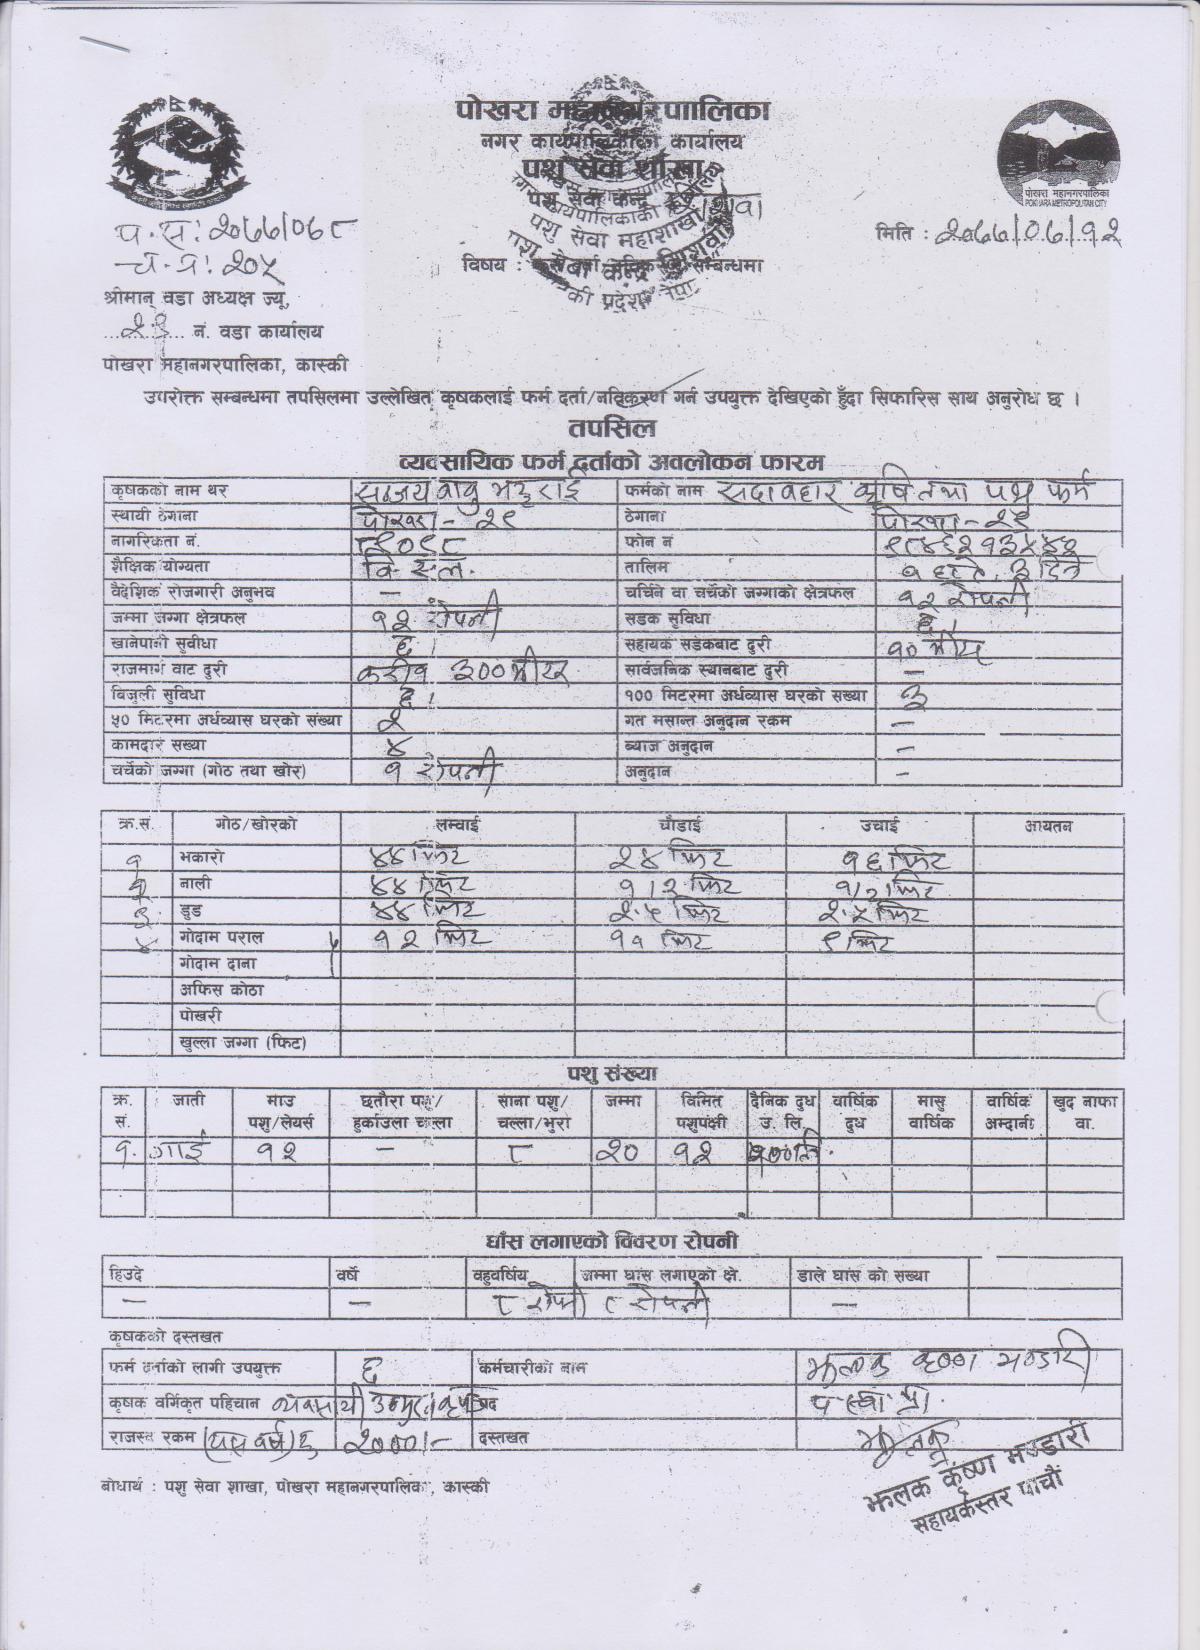 पोखरा महानगरपालिका
नगर कार्यपालिकाको कार्यालय
पशु सेवा शाखा
पशु सेवा केन्द्र
पोखरा महानगरपालिका
POKHARA METROPOLITAN CITY
प.स: २०७७/०७८
मिति : २०७७/०७/१२
च.न: २०५
विषय : सम्बन्धमा
श्रीमान् वडा अध्यक्ष ज्यू,
नं. वडा कार्यालय
पोखरा महानगरपालिका, कास्की
उपरोक्त सम्बन्धमा तपसिलमा उल्लेखित कृषकलाई फर्म दर्ता/नविकरण गर्न उपयुक्त देखिएको हुँदा सिफारिस साथ अनुरोध छ ।
तपसिल
व्यवसायिक फर्म दर्ताको अवलोकन फारम
कृषकको नाम थर सञ्जय बाबु भट्टराई फर्मको नाम सदावहार कृषि तथा पशु फर्म
स्थायी ठेगाना पोखरा - २९ ठेगाना पोखरा - २९
नागरिकता नं. ८९०९८ फोन नं ९८४६२१३५४२
शैक्षिक योग्यता वि. एल. तालिम
वैदेशिक रोजगारी अनुभव — चर्चिने वा चर्चेको जग्गाको क्षेत्रफल १२ रोपनी
जम्मा जग्गा क्षेत्रफल १२ रोपनी सडक सुविधा छ।
खानेपानी सुवीधा छ। सहायक सडकबाट दुरी १० मीटर
राजमार्ग वाट दुरी करीव ३०० मीटर सार्वजनिक स्थानबाट दुरी —
विजुली सुविधा छ। १०० मिटरमा अर्धव्यास घरको सख्या ३
५० मिटरमा अर्धव्यास घरको संख्या २ गत मसान्त अनुदान रकम —
कामदार सख्या ४ ब्याज अनुदान —
चर्चेको जग्गा (गोठ तथा खोर) १ रोपनी अनुदान —
क्र.सं. गोठ/खोरको लम्वाई चौडाई उचाई आयतन
१ भकारो ४४ फिट २४ फिट १६ फिट
२ नाली ४४ फिट १/२ फिट १/२ फिट
३ डुड ४४ फिट २.५ फिट २.५ फिट
४ गोदाम पराल १२ फिट ११ फिट ९ फिट
गोदाम दाना
अफिस कोठा
पोखरी
खुल्ला जग्गा (फिट)
पशु संख्या
क्र. सं. जाती माउ पशु/लेयर्स छतौरा पशु/ हुर्काउला चल्ला साना पशु/ चल्ला/भुरा जम्मा विमित पशुपंक्षी दैनिक दुध उ. लि. वार्षिक दुध मासु वार्षिक वार्षिक अम्दानी खुद नाफा वा.
१. गाई १२ — ८ २० १२
घाँस लगाएको विवरण रोपनी
हिउदे वर्षे वहुवर्षिय जम्मा घाँस लगाएको क्षे. डाले घांस को सख्या
— — ८ रोपनी ८ रोपनी —
कृषकको दस्तखत
फर्म दर्ताको लागी उपयुक्त छ कर्मचारीको नाम झलक कृष्ण भण्डारी
कृषक वर्गिकृत पहिचान व्यवसायी पद प. स्वा. प्रा.
राजस्व रकम (यस वर्ष) रु २०००/- दस्तखत झलक
बोधार्थ : पशु सेवा शाखा, पोखरा महानगरपालिका, कास्की
झलक कृष्ण भण्डारी
सहायकस्तर पाचौं